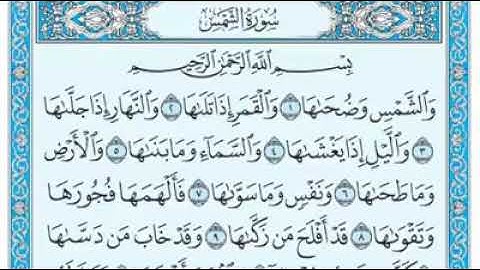 سُورَةُ الشَّمْسِ
بِسْمِ اللَّهِ الرَّحْمَٰنِ الرَّحِيمِ
وَالشَّمْسِ وَضُحَىٰهَا ١ وَالْقَمَرِ إِذَا تَلَىٰهَا ٢ وَالنَّهَارِ إِذَا جَلَّىٰهَا
٣ وَالَّيْلِ إِذَا يَغْشَىٰهَا ٤ وَالسَّمَاءِ وَمَا بَنَىٰهَا ٥ وَالْأَرْضِ
وَمَا طَحَىٰهَا ٦ وَنَفْسٍ وَمَا سَوَّىٰهَا ٧ فَأَلْهَمَهَا فُجُورَهَا
وَتَقْوَىٰهَا ٨ قَدْ أَفْلَحَ مَن زَكَّىٰهَا ٩ وَقَدْ خَابَ مَن دَسَّىٰهَا